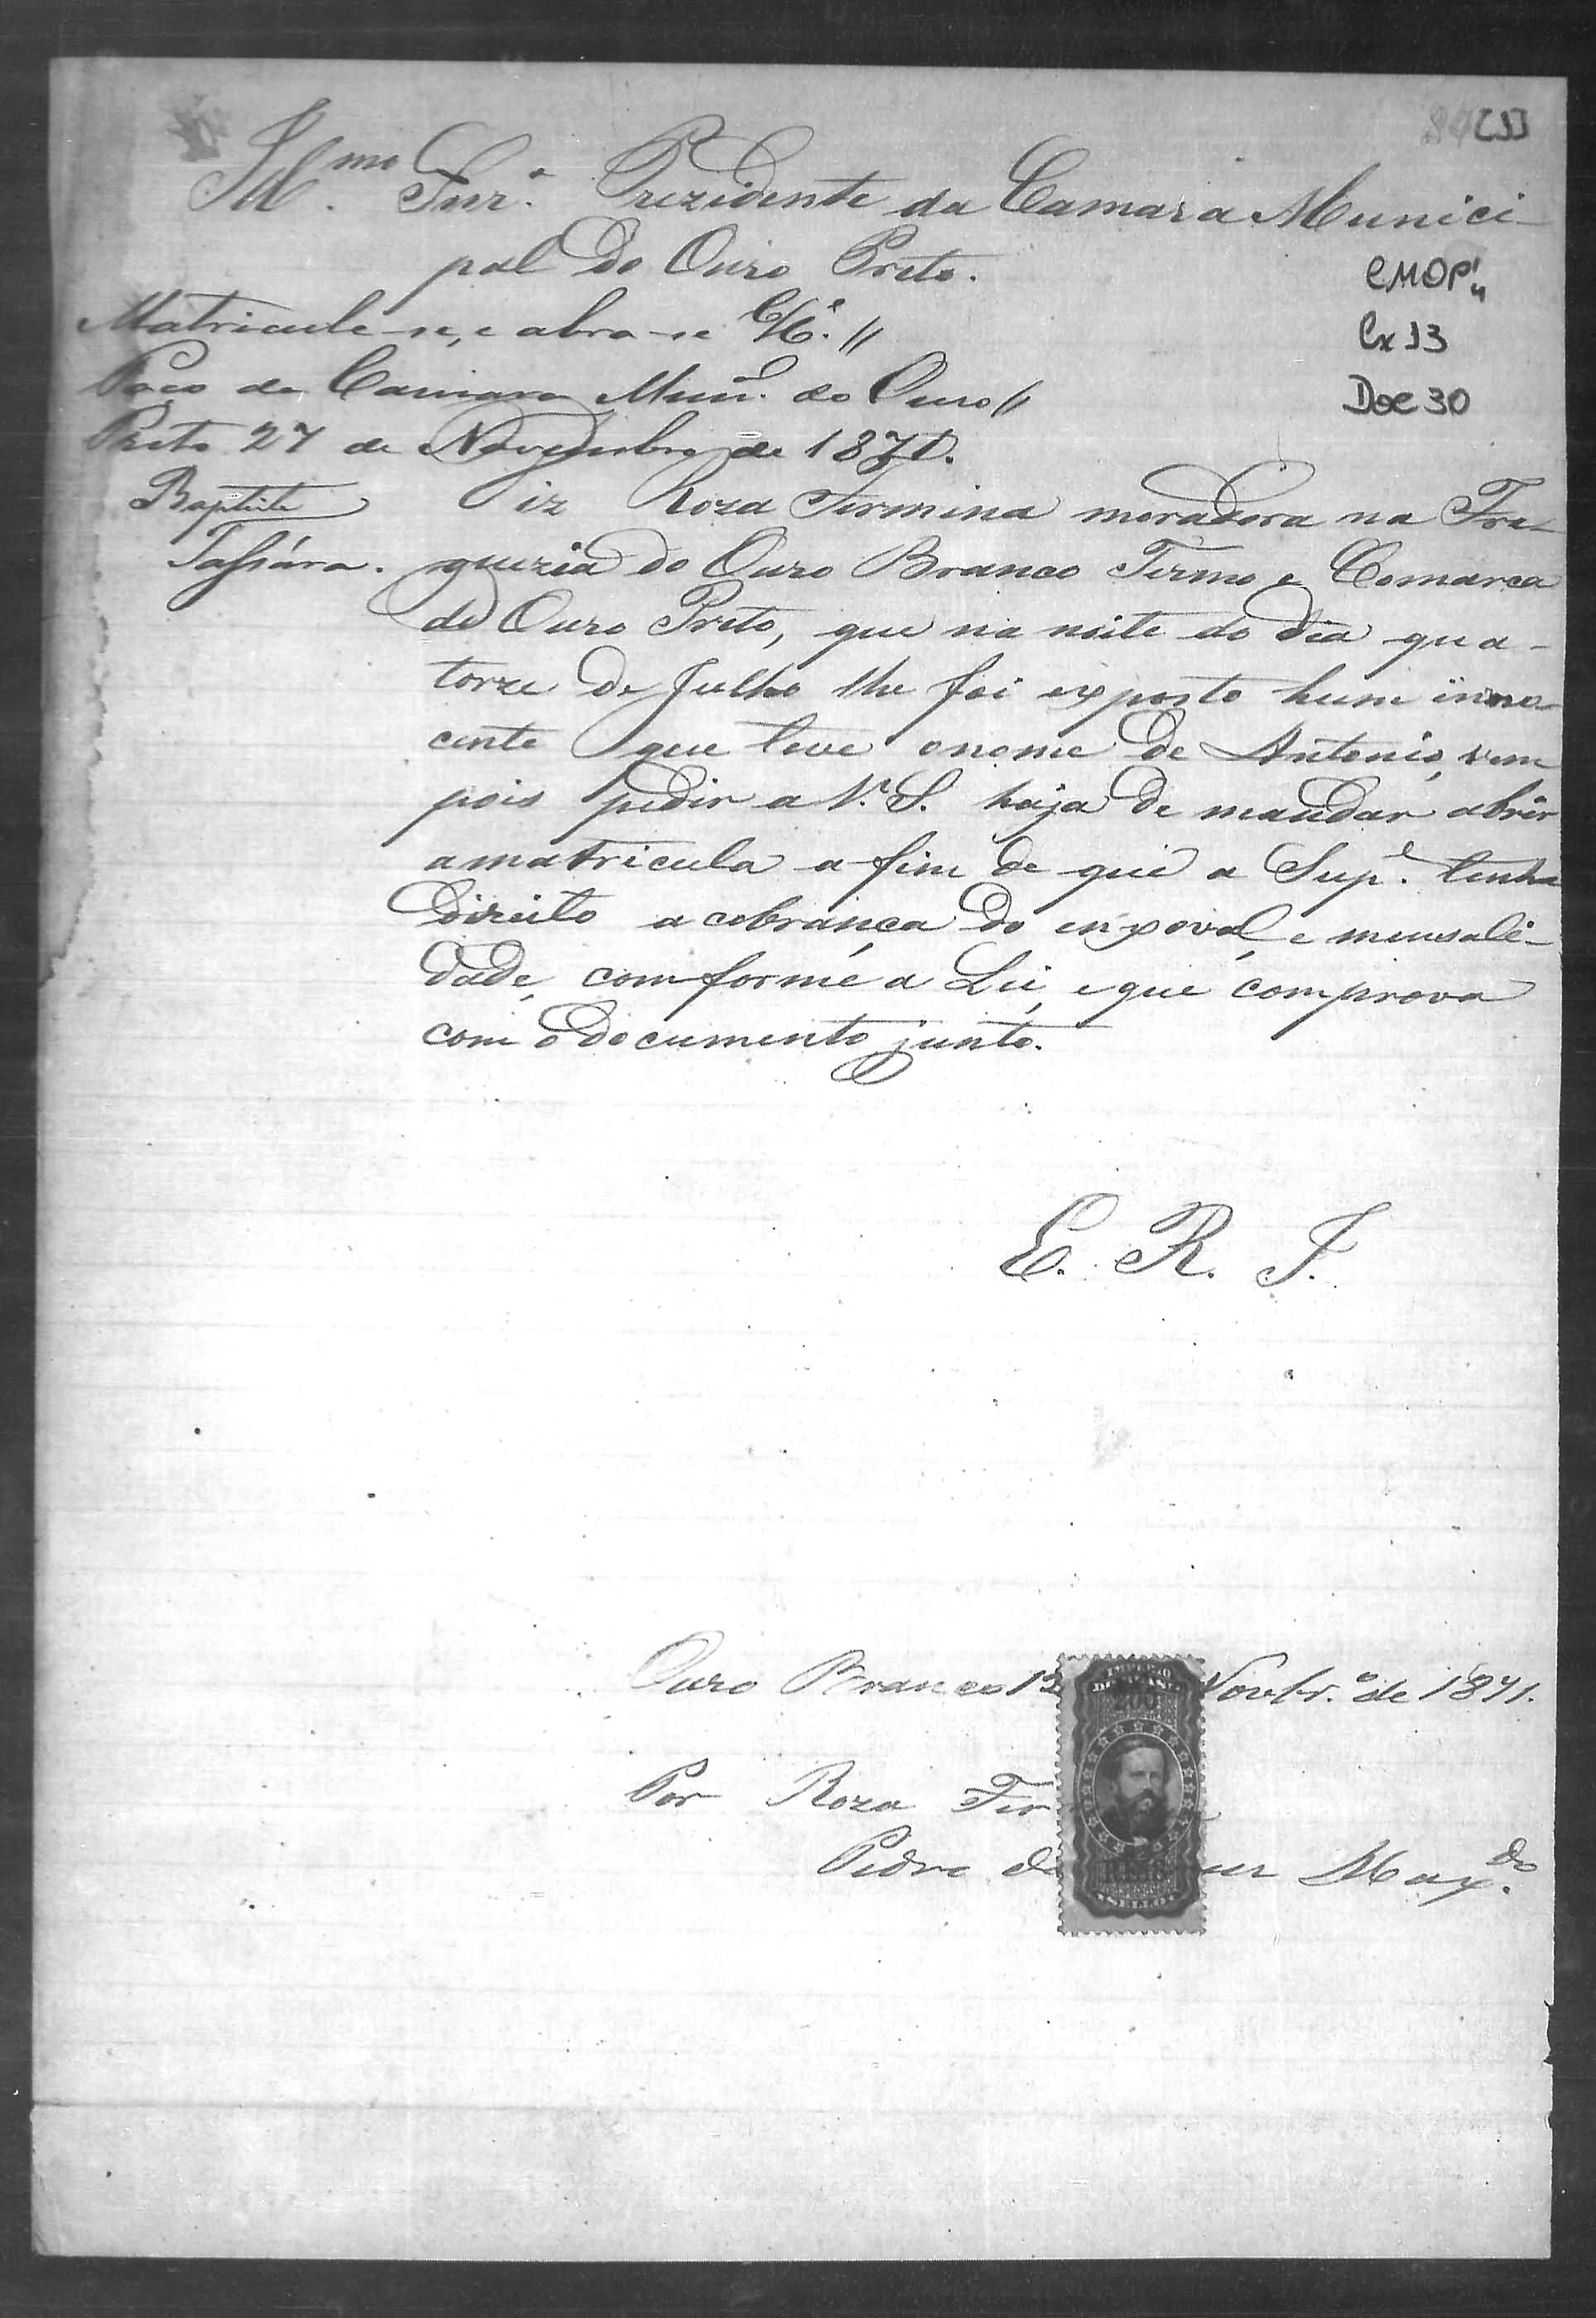 84 [1]
Ill.mo Snr.e Prezidente da Camara Munici-
pal do Ouro Preto.
CMOP"
Cx 13
Doc 30
Matricule-se, e abra-se C/c. //
Paço da Camara Mun. do Ouro //
Preto 27 de Novembro de 1871.
Baptista
Tassára.
Diz Roza Firmina moradora na Fre-
guezia do Ouro Branco Termo e Comarca
de Ouro Preto, que na noite do dia qua-
torze de Julho lhe foi exposto hum inno-
cente que teve o nome de Antonio, vem
pois pedir a V.ª S. haja de mandar abrir
a matricula a fim de que a Sup.e tenha
direito a cobrança do enxoval, e mensali-
dade, comforme a Lei, e que comprova
com o documento junto.
E. R. J.
Ouro Branco 12 Novbr.o de 1871.
IMPERIO
DO BRASIL
200
Por Roza Fir
Pedro d Max.do
REIS
SELLO